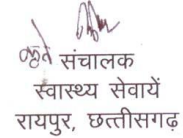 कृते संचालक
स्वास्थ्य सेवायें
रायपुर, छत्तीसगढ़